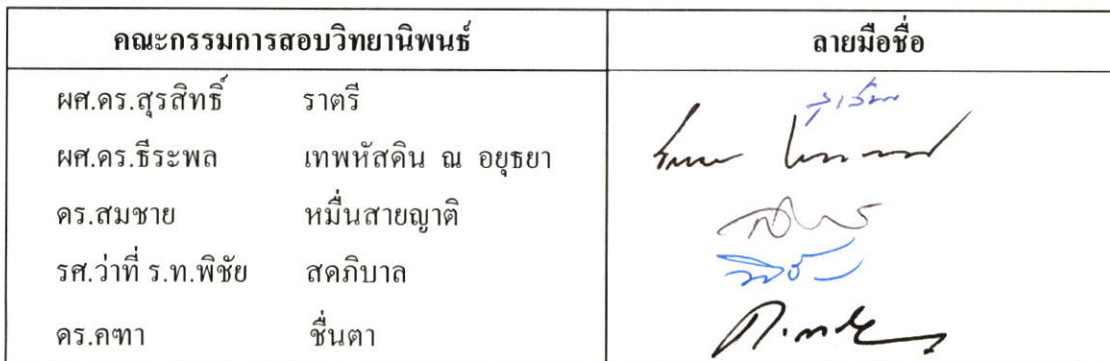 คณะกรรมการสอบวิทยานิพนธ์ ลายมือชื่อ
ผศ.ดร.สุรสิทธิ์ ราตรี
ผศ.ดร.ธีระพล เทพหัสดิน ณ อยุธยา
ดร.สมชาย หมื่นสายญาติ
รศ.ว่าที่ ร.ท.พิชัย สดภิบาล
ดร.คฑา ชื่นตา